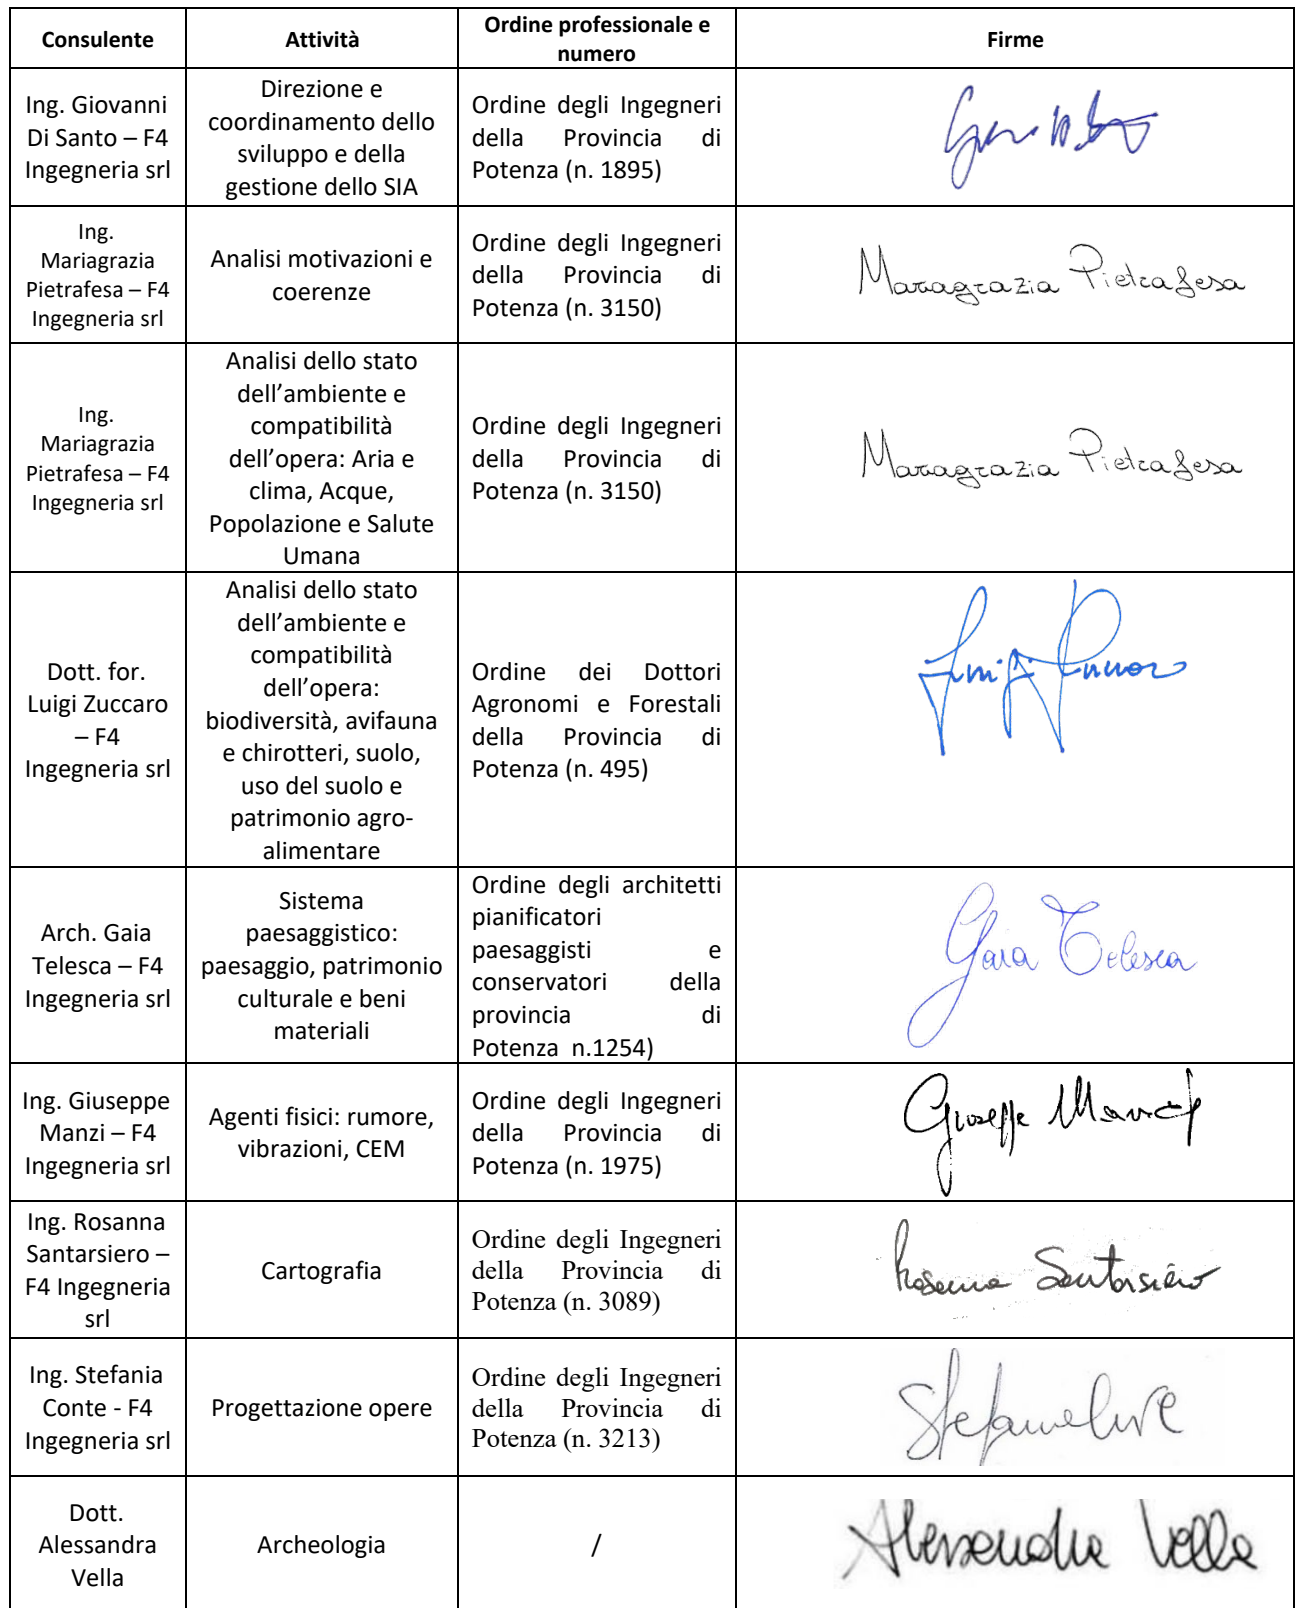 Consulente
Attività
Ordine professionale e
numero
Firme
Ing. Giovanni
Di Santo – F4
Ingegneria srl
Direzione e
coordinamento dello
sviluppo e della
gestione dello SIA
Ordine degli Ingegneri
della Provincia di
Potenza (n. 1895)
Ing.
Mariagrazia
Pietrafesa – F4
Ingegneria srl
Analisi motivazioni e
coerenze
Ordine degli Ingegneri
della Provincia di
Potenza (n. 3150)
Maragrazia Pietrafesa
Ing.
Mariagrazia
Pietrafesa – F4
Ingegneria srl
Analisi dello stato
dell’ambiente e
compatibilità
dell’opera: Aria e
clima, Acque,
Popolazione e Salute
Umana
Ordine degli Ingegneri
della Provincia di
Potenza (n. 3150)
Maragrazia Pietrafesa
Dott. for.
Luigi Zuccaro
– F4
Ingegneria srl
Analisi dello stato
dell’ambiente e
compatibilità
dell’opera:
biodiversità, avifauna
e chirotteri, suolo,
uso del suolo e
patrimonio agro-
alimentare
Ordine dei Dottori
Agronomi e Forestali
della Provincia di
Potenza (n. 495)
Luigi
Arch. Gaia
Telesca – F4
Ingegneria srl
Sistema
paesaggistico:
paesaggio, patrimonio
culturale e beni
materiali
Ordine degli architetti
pianificatori
paesaggisti e
conservatori della
provincia di
Potenza n.1254)
Gaia Telesca
Ing. Giuseppe
Manzi – F4
Ingegneria srl
Agenti fisici: rumore,
vibrazioni, CEM
Ordine degli Ingegneri
della Provincia di
Potenza (n. 1975)
Giuseppe Manzi
Ing. Rosanna
Santarsiero –
F4 Ingegneria
srl
Cartografia
Ordine degli Ingegneri
della Provincia di
Potenza (n. 3089)
Rosanna Santarsiero
Ing. Stefania
Conte - F4
Ingegneria srl
Progettazione opere
Ordine degli Ingegneri
della Provincia di
Potenza (n. 3213)
Stefania Conte
Dott.
Alessandra
Vella
Archeologia
/
Alessandra Vella